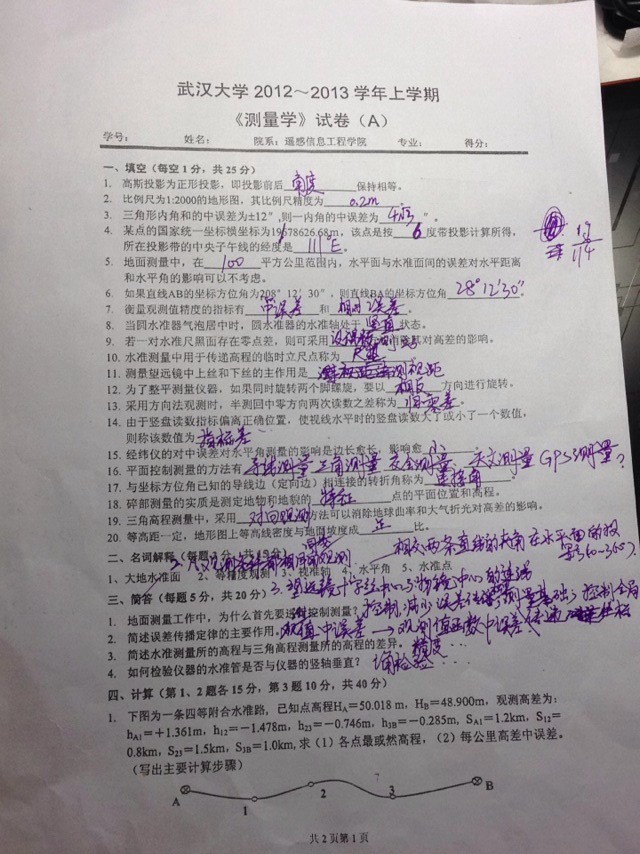 武汉大学 2012～2013 学年上学期
《测量学》试卷（A）
学号： 姓名： 院系：遥感信息工程学院 专业： 得分：
一、填空（每空 1 分，共 25 分）
1. 高斯投影为正形投影，即投影前后 角度 保持相等。
2. 比例尺为1:2000的地形图，其比例尺精度为 0.2m
3. 三角形内角和的中误差为±12″,则一内角的中误差为 4√3 ″。
4. 某点的国家统一坐标横坐标为19678626.68m，该点是按 6 度带投影计算所得，
所在投影带的中央子午线的经度是 111°E。
5. 地面测量中，在 100 平方公里范围内，水平面与水准面间的误差对水平距离
和水平角的影响可以不考虑。
6. 如果直线AB的坐标方位角为208°12′30″，则直线BA的坐标方位角 28°12′30″
7. 衡量观测值精度的指标有 中误差 和 相对误差。
8. 当圆水准器气泡居中时，圆水准器的水准轴处于 竖直 状态。
9. 若一对水准尺黑面存在零点差，则可采用 对高差的影响。
10. 水准测量中用于传递高程的临时立尺点称为
11. 测量望远镜中上丝和下丝的主作用是 测视距
12. 为了整平测量仪器，如果同时旋转两个脚螺旋，要以 相反 方向进行旋转。
13. 采用方向法观测时，半测回中零方向两次读数之差称为 归零差。
14. 由于竖盘读数指标偏离正确位置，使视线水平时的竖盘读数大了或小了一个数值，
则称该数值为 指标差
15. 经纬仪的对中误差对水平角测量的影响是边长愈长，影响愈 小
16. 平面控制测量的方法有 导线测量 三角测量 交会测量、天文测量 GPS测量？
17. 与坐标方位角已知的导线边（定向边）相连接的转折角称为 连接角
18. 碎部测量的实质是测定地物和地貌的 特征 点的平面位置和高程。
19. 三角高程测量中，采用 对向观测 方法可以消除地球曲率和大气折光对高差的影响。
20. 等高距一定，地形图上等高线密度与地面坡度成 正 比。
二、名词解释（每题
1、大地水准面 2、等精度观测 3、视准轴 4、水平角 5、水准点
三、简答（每题 5 分，共 20 分）
1. 地面测量工作中，为什么首先要进行控制测量？
2. 简述误差传播定律的主要作用。
3. 简述水准测量所的高程与三角高程测量所高程的差异。
4. 如何检验仪器的水准管是否与仪器的竖轴垂直？
四、计算（第 1、2 题各 15 分，第 3 题 10 分，共 40 分）
1. 下图为一条四等附合水准路，已知点高程H_A=50.018 m，H_B=48.900m，观测高差为：
h_A1=+1.361m，h_12=−1.478m，h_23=−0.746m，h_3B=−0.285m，S_A1=1.2km，S_12=
0.8km，S_23=1.5km，S_3B=1.0km,求（1）各点最或然高程，（2）每公里高差中误差。
（写出主要计算步骤）
A 1 2 3 B
共 2 页第 1 页